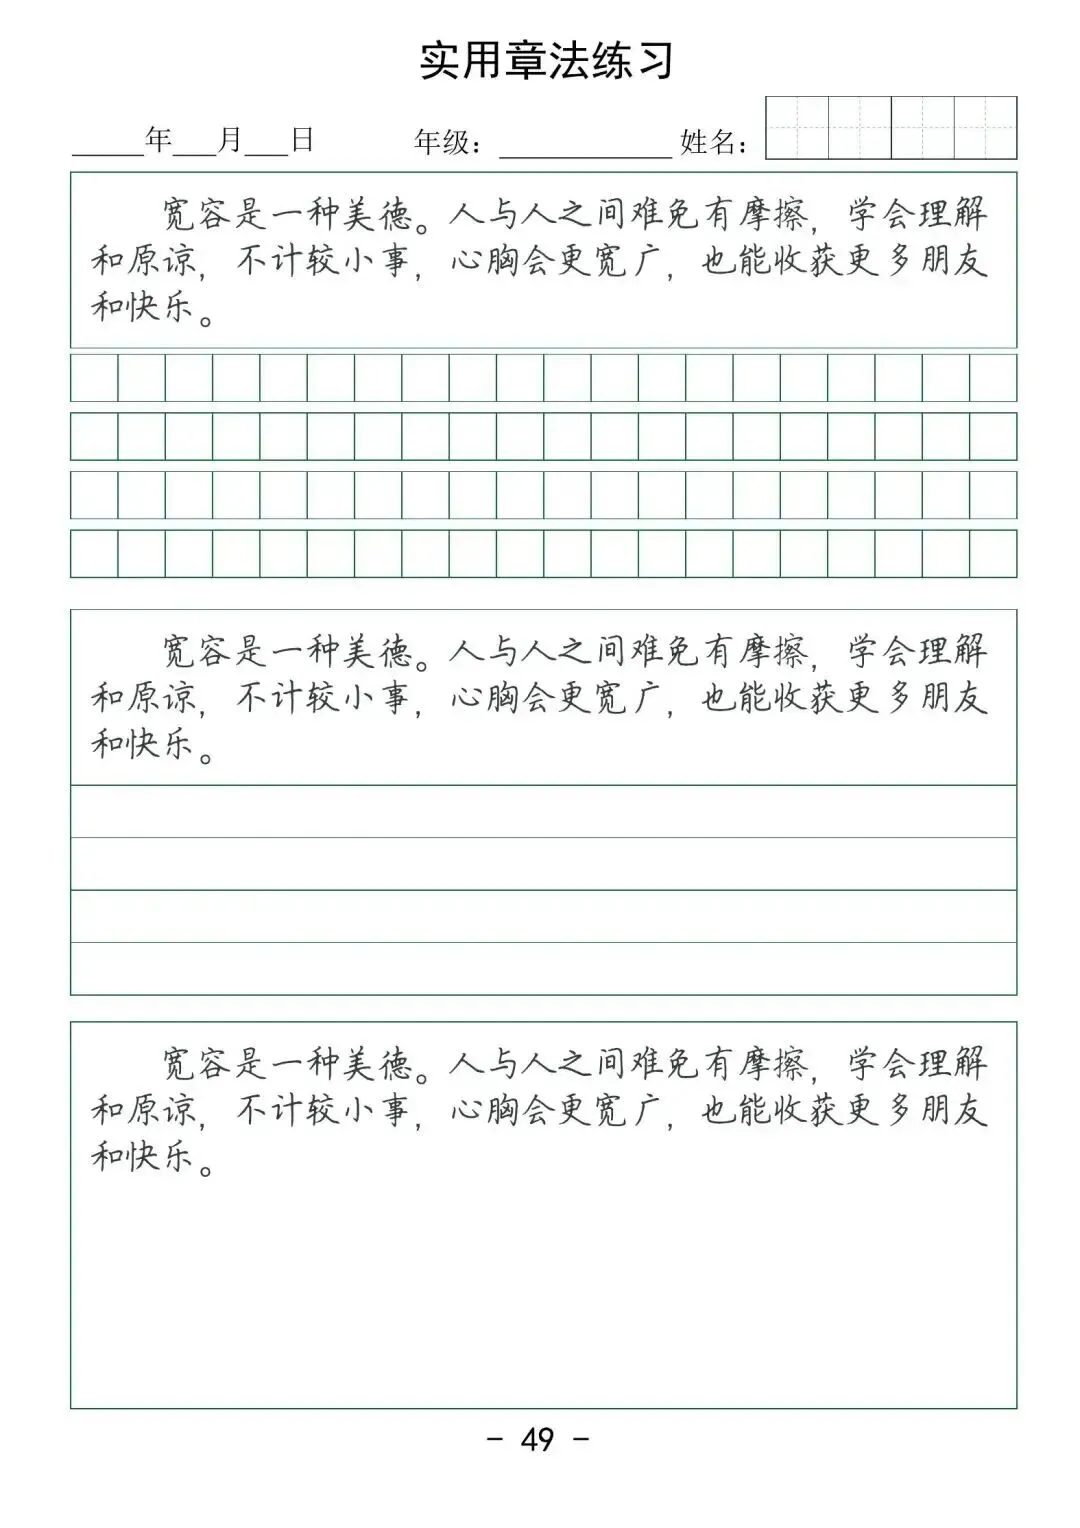 实用章法练习
_____年___月___日 年级：____________ 姓名：
宽容是一种美德。人与人之间难免有摩擦，学会理解
和原谅，不计较小事，心胸会更宽广，也能收获更多朋友
和快乐。
宽容是一种美德。人与人之间难免有摩擦，学会理解
和原谅，不计较小事，心胸会更宽广，也能收获更多朋友
和快乐。
宽容是一种美德。人与人之间难免有摩擦，学会理解
和原谅，不计较小事，心胸会更宽广，也能收获更多朋友
和快乐。
- 49 -